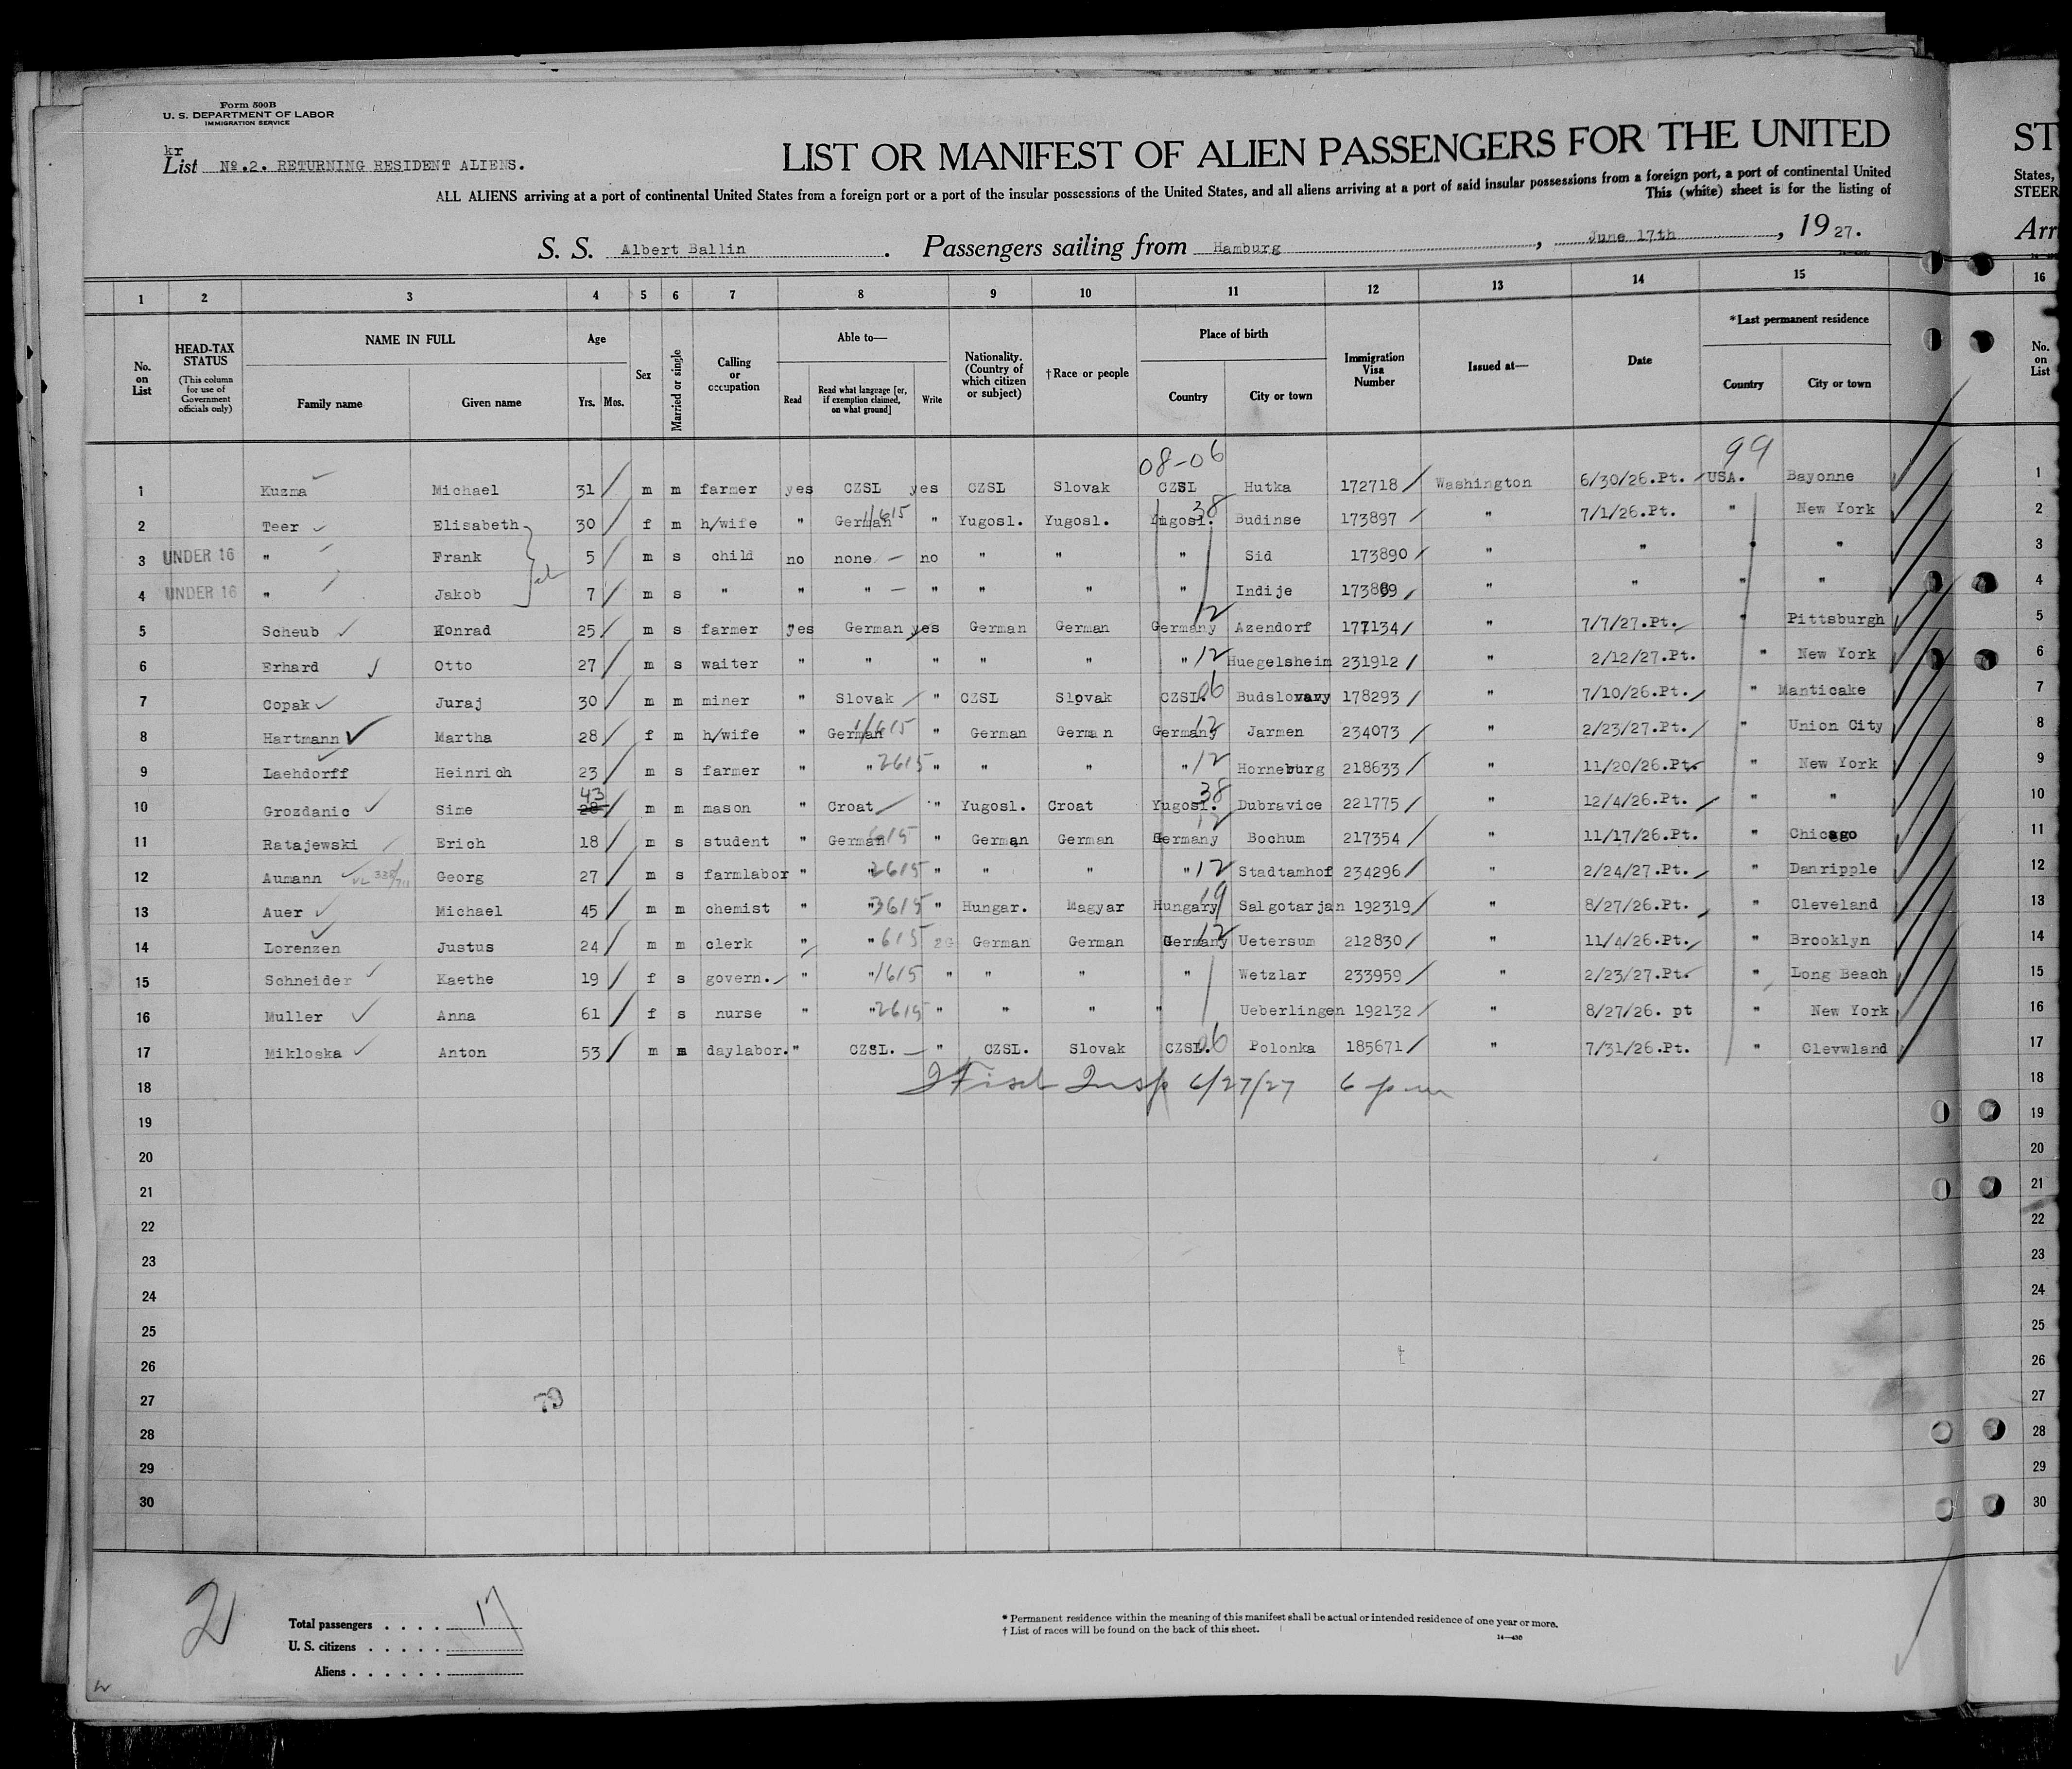 Form 500B
U. S. DEPARTMENT OF LABOR
IMMIGRATION SERVICE
kr
List No.2. RETURNING RESIDENT ALIENS.
LIST OR MANIFEST OF ALIEN PASSENGERS FOR THE UNITED
ST
ALL ALIENS arriving at a port of continental United States from a foreign port or a port of the insular possessions of the United States, and all aliens arriving at a port of said insular possessions from a foreign port, a port of continental United
States,
This (white) sheet is for the listing of
STEER
S. S. Albert Ballin . Passengers sailing from Hamburg , June 17th , 1927.
Arr
1 2 3 4 5 6 7 8 9 10 11 12 13 14 15 16
No. on List
HEAD-TAX STATUS
(This column for use of Government officials only)
NAME IN FULL
Family name Given name
Age
Yrs. Mos.
Sex
Married or single
Calling or occupation
Able to—
Read
Read what language [or, if exemption claimed, on what ground]
Write
Nationality. (Country of which citizen or subject)
†Race or people
Place of birth
Country City or town
Immigration Visa Number
Issued at—
Date
*Last permanent residence
Country City or town
No. on List
08-06 99
1 Kuzma Michael 31 m m farmer yes CZSL yes CZSL Slovak CZSL Hutka 172718 Washington 6/30/26.Pt. USA. Bayonne 1
2 Teer Elisabeth 30 f m h/wife " German 11615 " Yugosl. Yugosl. Yugosl. 38 Budinse 173897 " 7/1/26.Pt. " New York 2
3 UNDER 16 " Frank 5 m s child no none — no " " " Sid 173890 " " " " 3
4 UNDER 16 " Jakob 7 m s " " " — " " " " Indije 173889 " " " " 4
5 Scheub Konrad 25 m s farmer yes German yes German German Germany 12 Azendorf 177134 " 7/7/27.Pt. " Pittsburgh 5
6 Erhard Otto 27 m s waiter " " " " " " 12 Huegelsheim 231912 " 2/12/27.Pt. " New York 6
7 Copak Juraj 30 m m miner " Slovak " CZSL Slovak CZSL. 06 Budslovavy 178293 " 7/10/26.Pt. " Manticake 7
8 Hartmann Martha 28 f m h/wife " German 11615 " German German Germany 12 Jarmen 234073 " 2/23/27.Pt. " Union City 8
9 Laehdorff Heinrich 23 m s farmer " " 2615 " " " " 12 Horneburg 218633 " 11/20/26.Pt. " New York 9
43
10 Grozdanic Sime 28 m m mason " Croat " Yugosl. Croat Yugosl. 38 Dubravice 221775 " 12/4/26.Pt. " " 10
11 Ratajewski Erich 18 m s student " German 615 " German German Germany 12 Bochum 217354 " 11/17/26.Pt. " Chicago 11
12 Aumann Georg 27 m s farmlabor " " 2615 " " " " 12 Stadtamhof 234296 " 2/24/27.Pt. " Danripple 12
13 Auer Michael 45 m m chemist " " 3615 " Hungar. Magyar Hungary 19 Salgotarjan 192319 " 8/27/26.Pt. " Cleveland 13
14 Lorenzen Justus 24 m m clerk " " 615 German German Germany 12 Uetersum 212830 " 11/4/26.Pt. " Brooklyn 14
15 Schneider Kaethe 19 f s govern. " " 1615 " " " " Wetzlar 233959 " 2/23/27.Pt. " Long Beach 15
16 Muller Anna 61 f s nurse " " 2615 " " " " Ueberlingen 192132 " 8/27/26. pt " New York 16
17 Mikloska Anton 53 m m daylabor. " CZSL. — " CZSL. Slovak CZSL. 06 Polonka 185671 " 7/31/26.Pt. " Clevwland 17
18 Insp 6/27/27 6 pm 18
19 19
20 20
21 21
22 22
23 23
24 24
25 25
26 26
27 79 27
28 28
29 29
30 30
2
Total passengers . . . . 17
U. S. citizens . . . . .
Aliens . . . . . .
* Permanent residence within the meaning of this manifest shall be actual or intended residence of one year or more.
† List of races will be found on the back of this sheet.
14—430